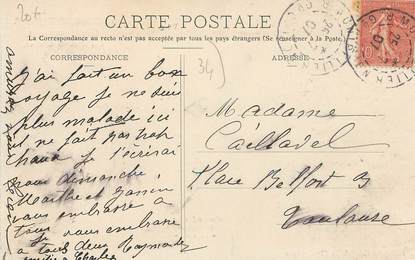 20f
CARTE POSTALE
La Correspondance au recto n'est pas acceptée par tous les pays étrangers (Se renseigner à la Poste)
CORRESPONDANCE
ADRESSE
34
J'ai fait un bon
voyage je ne suis
plus malade ici
il ne fait pas
chaud je t'écrirai
pour dimanche
Marthe et
vous embrasse à
tous vous embrasse
à tous deux Raymonde
Madame
Caillavel
Place Belfort 3
Toulouse